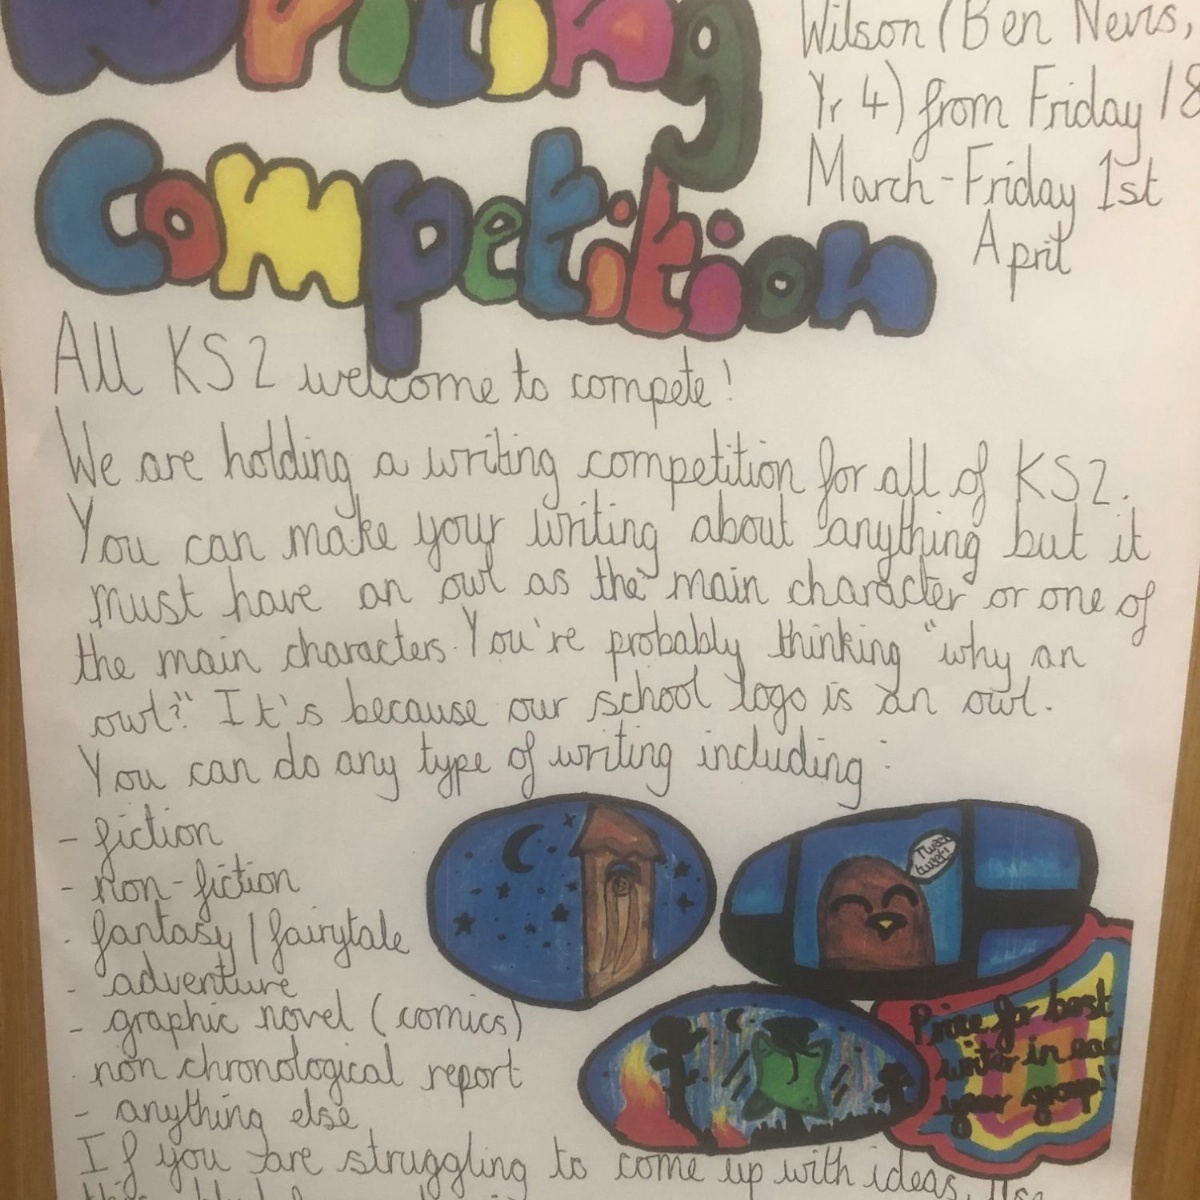 Writing
Competition
Wilson (Ben Nevis,
Yr 4) from Friday 18
March - Friday 1st
April
All KS2 welcome to compete!
We are holding a writing competition for all of KS2.
You can make your writing about anything but it
must have an owl as the main character or one of
the main characters. You're probably thinking "why an
owl?" It's because our school logo is an owl.
You can do any type of writing including:
- fiction
- non-fiction
- fantasy / fairytale
- adventure
- graphic novel (comics)
- non chronological report
- anything else
Tweet
tweet!
Prize for best
writer in each
year group!
If you are struggling to come up with ideas, use